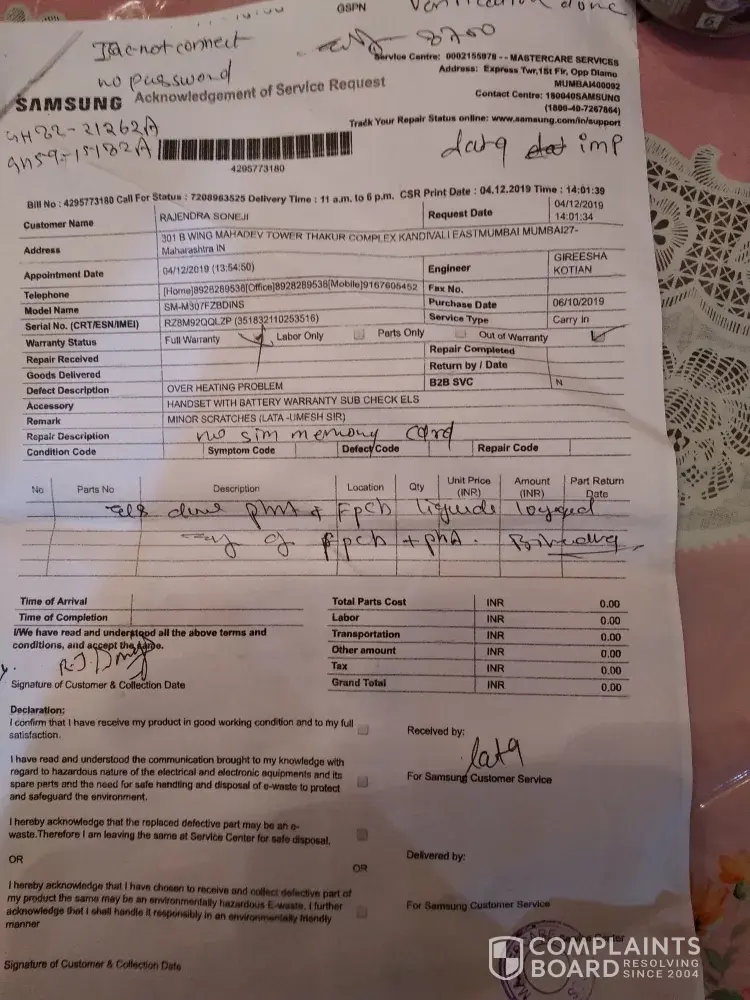 GSPN
Verification done
8700
not connect
no password
Service Centre: 0002155978 - - MASTERCARE SERVICES
Address: Express Twr,1St Flr, Opp Diamo
MUMBAI400092
Contact Centre: 180040SAMSUNG
(1800-40-7267864)
Track Your Repair Status online: www.samsung.com/in/support
SAMSUNG Acknowledgement of Service Request
GH82-21262A
GH59-15182A
data imp
4295773180
Bill No : 4295773180 Call For Status : 7208963525 Delivery Time : 11 a.m. to 6 p.m. CSR Print Date : 04.12.2019 Time : 14:01:39
Customer Name RAJENDRA SONEJI Request Date 04/12/2019 14:01:34
Address 301 B WING MAHADEV TOWER THAKUR COMPLEX KANDIVALI EASTMUMBAI MUMBAI27-
Maharashtra IN
Appointment Date 04/12/2019 (13:54:50) Engineer GIREESHA KOTIAN
Telephone [Home]8928289538[Office]8928289538[Mobile]9167605452 Fax No.
Model Name SM-M307FZBDINS Purchase Date 06/10/2019
Serial No. (CRT/ESN/IMEI) RZ8M92QQLZP (351832110253516) Service Type Carry in
Warranty Status Full Warranty Labor Only Parts Only Out of Warranty
Repair Received Repair Completed
Goods Delivered Return by / Date
Defect Description OVER HEATING PROBLEM B2B SVC N
Accessory HANDSET WITH BATTERY WARRANTY SUB CHECK ELS
Remark MINOR SCRATCHES (LATA -UMESH SIR)
Repair Description no sim memory card
Condition Code Symptom Code Defect Code Repair Code
No Parts No Description Location Qty Unit Price (INR) Amount (INR) Part Return Date
done + Fpcb
of fpcb + pba.
Time of Arrival
Time of Completion
I/We have read and understood all the above terms and
conditions, and accept the same.
Signature of Customer & Collection Date
Total Parts Cost INR 0.00
Labor INR 0.00
Transportation INR 0.00
Other amount INR 0.00
Tax INR 0.00
Grand Total INR 0.00
Declaration:
I confirm that I have receive my product in good working condition and to my full
satisfaction.
I have read and understood the communication brought to my knowledge with
regard to hazardous nature of the electrical and electronic equipments and its
spare parts and the need for safe handling and disposal of e-waste to protect
and safeguard the environment.
I hereby acknowledge that the replaced defective part may be an e-
waste.Therefore I am leaving the same at Service Center for safe disposal.
OR
OR
I hereby acknowledge that I have chosen to receive and collect defective part of
my product the same may be an environmentally hazardous E-waste, I further
acknowledge that I shall handle it responsibly in an environmentally friendly
manner
Signature of Customer & Collection Date
Received by:
lata
For Samsung Customer Service
Delivered by:
For Samsung Customer Service
COMPLAINTS
BOARD RESOLVING SINCE 2004